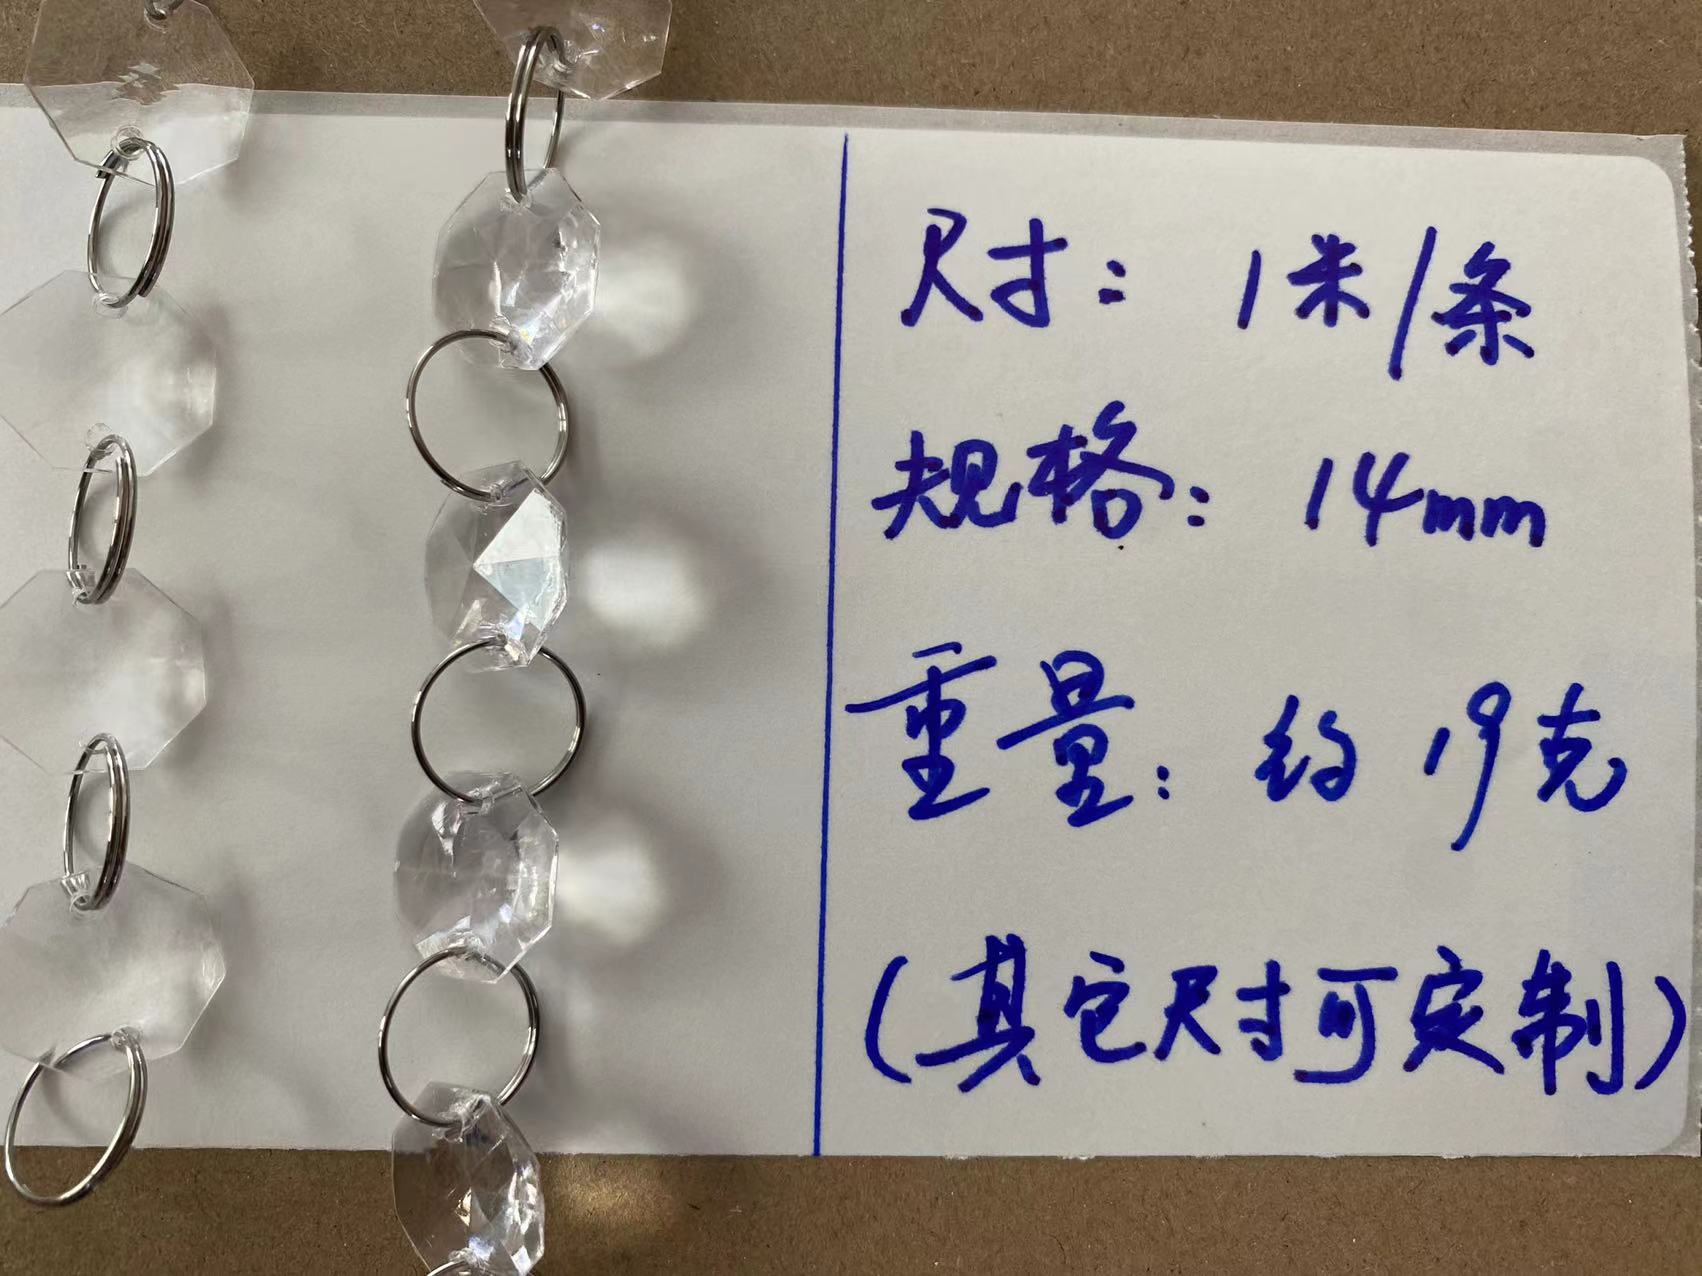 尺寸：1米/条
规格：14mm
重量：约19克
（其它尺寸可定制）